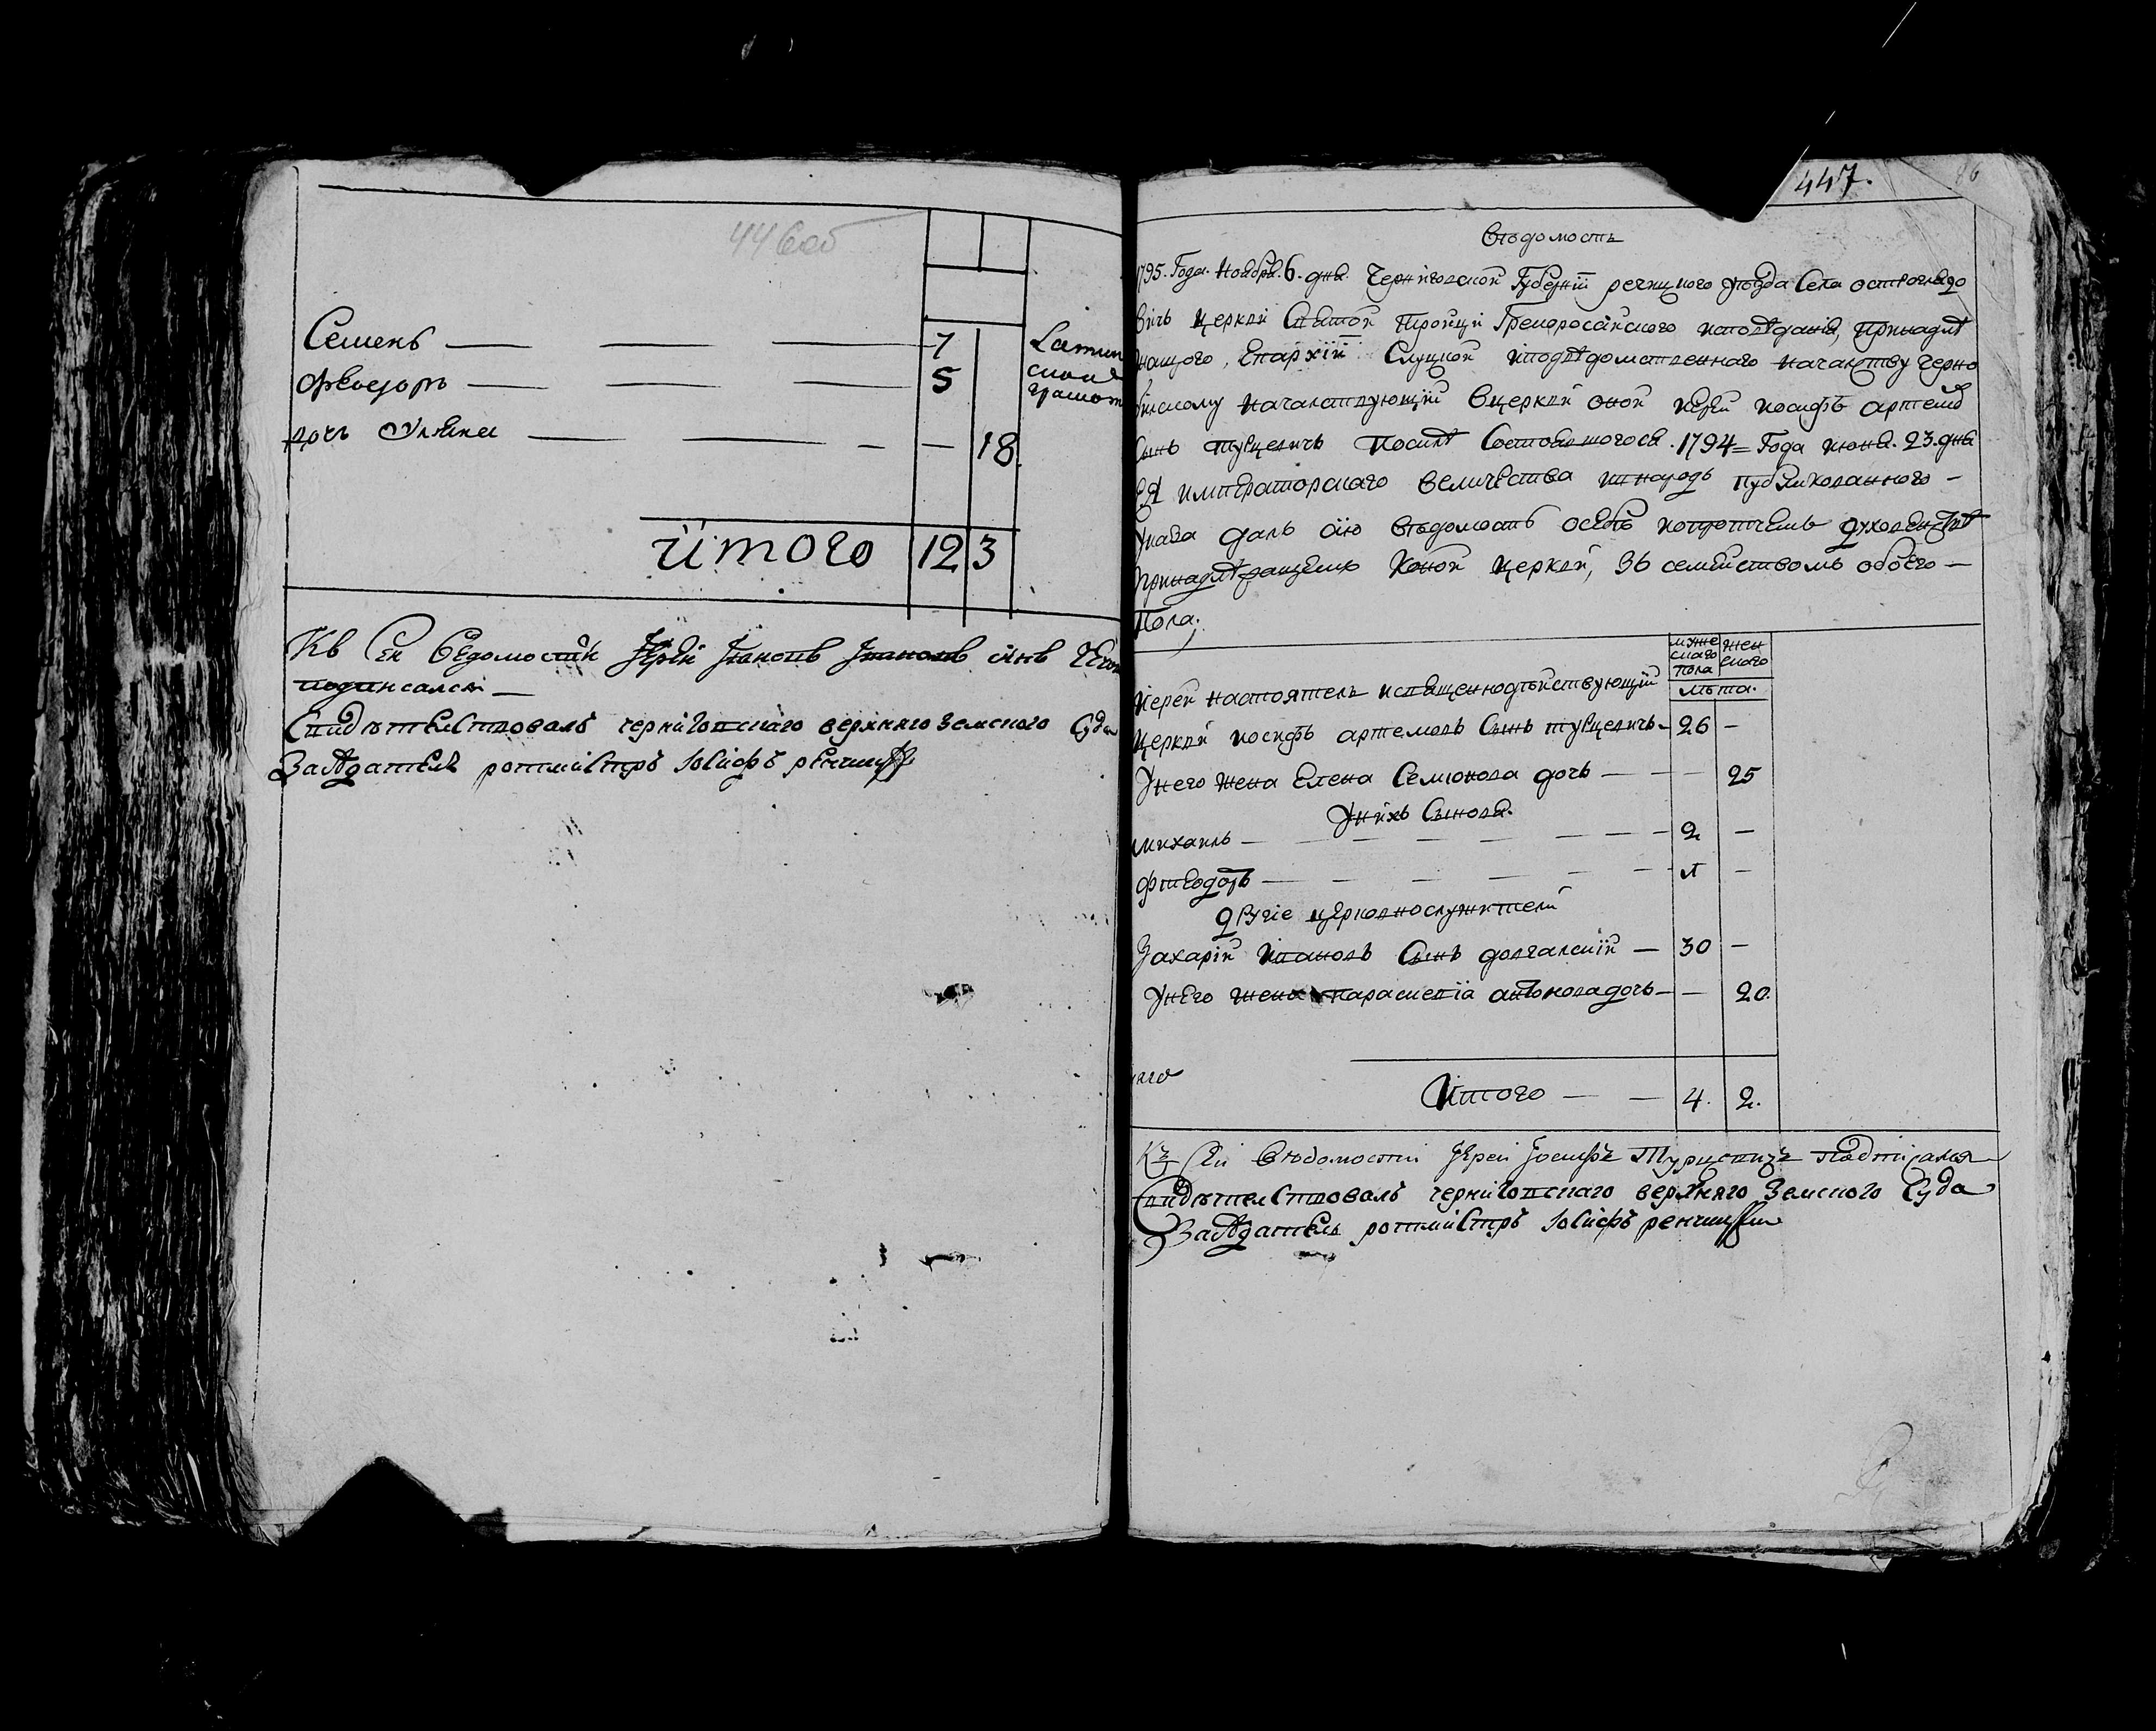 446об
Семенъ — — — 7
Ѳвеодоръ — — — 5
дочъ Уляна — — — — 18
Латин
ское
грамот
Итого 12 3
Къ сей ведомости Іерей Івановъ синъ
подписался —
Свидѣтелствовалъ черниговскаго верхняго земского Суда
Засѣдатель ротмистръ Іосифъ
447.
86
Вѣдомость
1795. Года. Ноября. 6. дня Черниговской Губернїи речицкого уѣзда Села остроглядо
вичъ церкви Святой тройци Грекоросійского исповѣданія, принадлѣ
жащого, Епархїи Слуцкой иподвѣдомственнаго началству черно
билскому началствующїй вцеркви оной иерей иосифъ артемов
Сынъ турцевичъ послѣ Состоявшогося. 1794= Года июня. 23. дня
ЕЯ императорскаго величества внародъ публикованного —
указа далъ сію вѣдомость осебѣ ипротчемъ духовенствѣ
принадлѣжащемъ коной церкви, зъ семействомъ обоего —
Пола;
мужескаго пола женскаго
лѣта.
Иерей настоятель исвященнодѣйствующїй
церкви иосифъ артемовъ Сынъ турцевичъ — 26 —
Унего жена Елена Семионова дочъ — — — 25
Унихъ Сыновя.
михаилъ — — — — — — 2 —
фтеодоръ — — — — — — —
другіе церковнослужители
Захарїй ивановъ Сынъ долгалскїй — 30 —
Унего жена параскевїа дочъ — — 20.
Итого — — 4. 2.
Къ Сей вѣдомости Іерей Іосифъ Турцевичъ подписался
Свидѣтелствовалъ черниговскаго верхняго Земского Суда
Засѣдатель ротмистръ Іосифъ